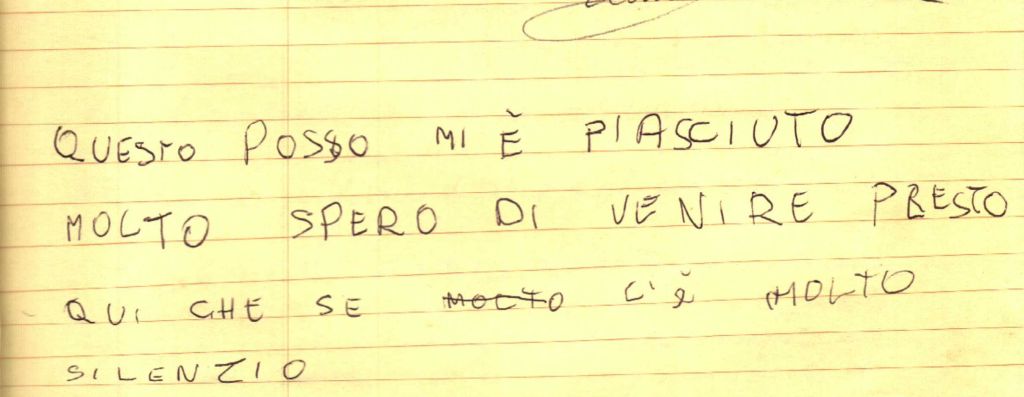 QUESTO POSSO MI È PIASCIUTO
MOLTO SPERO DI VENIRE PRESTO
QUI CHE SE MOLTO C'È MOLTO
SILENZIO